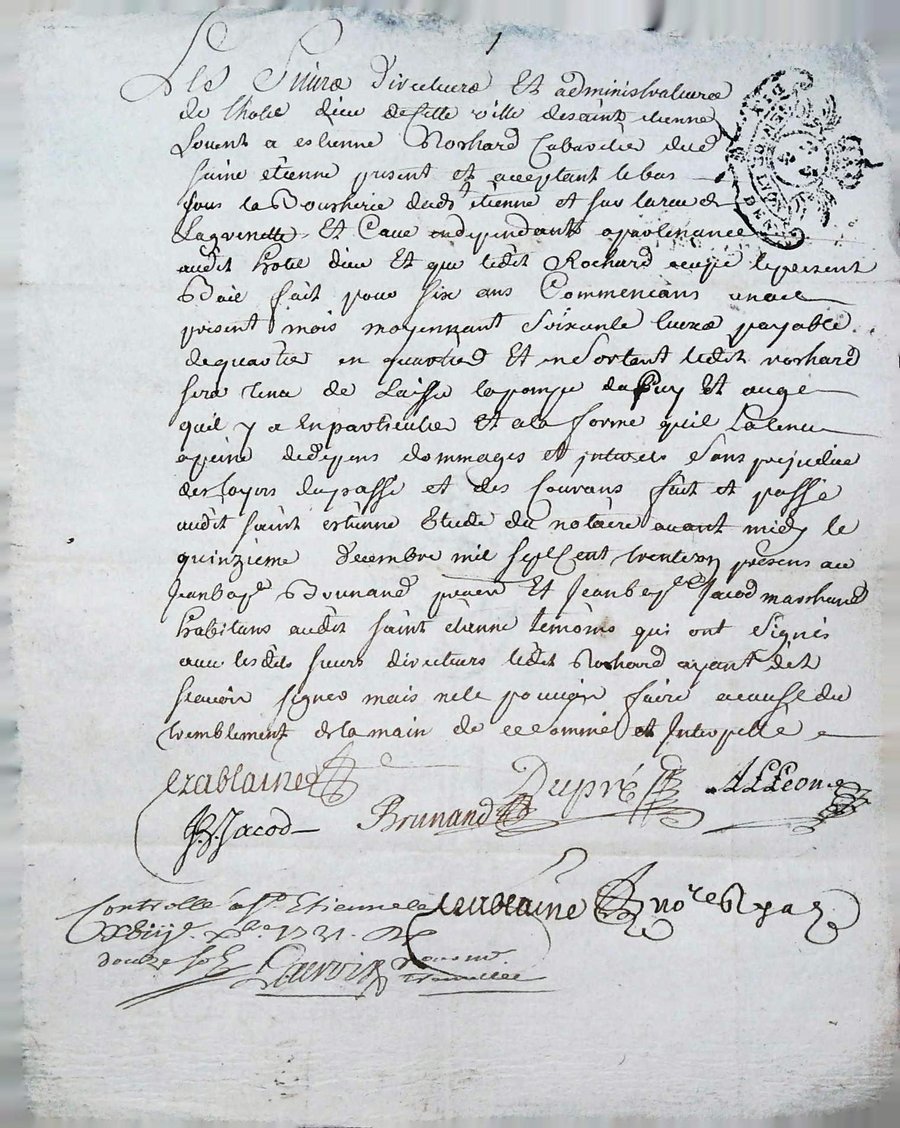 1
Les Srs directeurs Et administrateurs
de lhotel dieu de cette ville desaint etienne
Louent a estienne Rorhard Cabaretier dud
saint etienne present et acceptant le bas
sous la Boucherie dudt st etienne et sur la rue de
Lagrenette Et Cave en dependants apartenance
audit hotel dieu Et que ledit Rochard ocupe lepresent
Bail fait pour six ans Commencans en ce
present mois moyennant soixante livres payable
dequartier en quartier Et en Sortant ledit rorhard
sera tenu de Laisser lapompe du Puy Et auge
quil y a En particulier Et ala forme quil La tenue
apeine dedepens dommages et interets Sans prejudice
des loyers du passé et des Courans fait et passé
audit saint estienne Etude du notaire avant midy le
quinzieme decembre mil sept Cent trente un presens au
Jean bapt Brunand Et Jean bapt Jacod marchand
habitans audit saint etienne temoins qui ont Signés
avec lesdits sieurs directeurs ledit Rorhard ayant dit
scavoir signer mais ne le pouvoir faire acause du
tremblement de la main de ce Sommé et Interpellé
Crablaine Dupré ALLeon
JB. Jacod Brunand
Controllé a St Etienne le Crablaine nore Royal
xbre 1731. R
douze sols